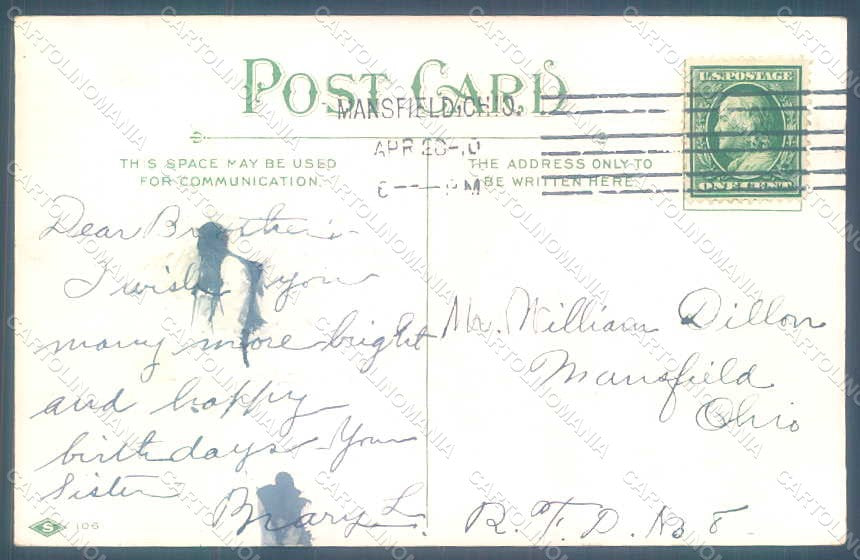 POST CARD
MANSFIELD, OHIO.
APR 20-10
6- - -PM
U.S. POSTAGE
ONE CENT
THIS SPACE MAY BE USED
FOR COMMUNICATION.
THE ADDRESS ONLY TO
BE WRITTEN HERE
Dear Brother:-
I wish you
many more bright
and happy
birthdays - Your
Sister
Mary L.
Mr. William Dillon
Mansfield
Ohio
R. F. D. No 8
S 106
CARTOLINOMANIA